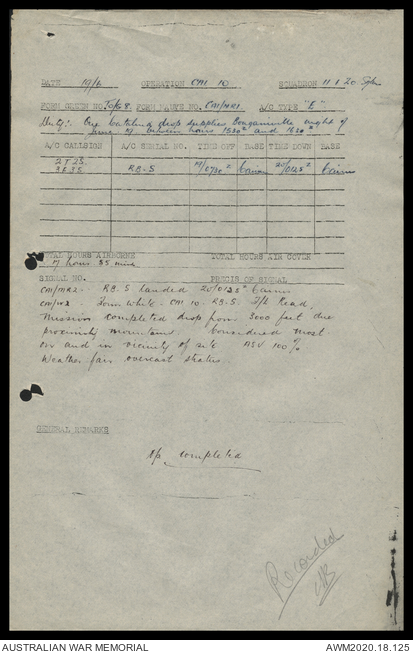 DATE 19/6 OPERATION CM 10 SQUADRON 11 & 20 Sqdn
FORM GREEN NO. FORM MAUVE NO. CM/MR1 A/C TYPE "E"
Duty:- One Catalina drop supplies Bougainville night of
between hours 1530Z and 1630Z
A/C CALLSIGN A/C SERIAL NO. TIME OFF BASE TIME DOWN BASE
2T25
3F35 RB-S 19/0730Z Cairns 20/0125Z Cairns
TOTAL HOURS AIRBORNE TOTAL HOURS AIR COVER
17 hours 55 mins
SIGNAL NO. PRECIS OF SIGNAL
CM/MR2 - RB-S landed 20/0125Z Cairns
Form White - CM 10 - RB-S F/L Read
Mission completed drop from 3000 feet due
proximity mountains. Considered most
on and in vicinity of site ASV 100%
Weather fair overcast
GENERAL REMARKS
Op completed
Recorded
AUSTRALIAN WAR MEMORIAL AWM2020.18.125